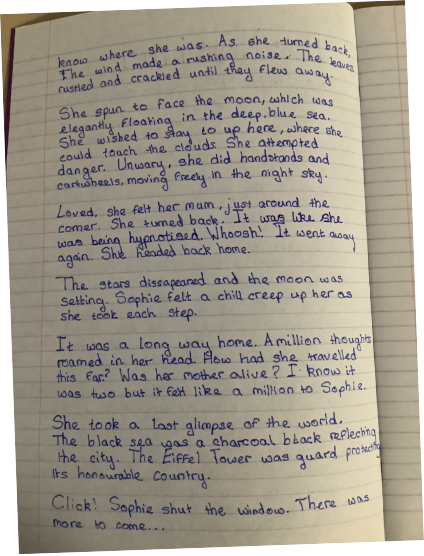 know where she was. As she turned back,
The wind made a rushing noise. The leaves
rustled and crackled until they flew away.
She spun to face the moon, which was
elegantly floating in the deep blue sea.
She wished to stay to up here, where she
could touch the clouds. She attempted
danger. Unwary, she did handstands and
cartwheels, moving freely in the night sky.
Loved, she felt her mum, just around the
corner. She turned back. It was like she
was being hypnotised. Whoosh! It went away
again. She headed back home.
The stars dissapeared and the moon was
setting. Sophie felt a chill creep up her as
she took each step.
It was a long way home. A million thoughts
roamed in her head. How had she travelled
this far? Was her mother alive? I know it
was two but it felt like a million to Sophie.
She took a last glimpse of the world.
The black sea was a charcoal black reflecting
the city. The Eiffel Tower was guard protecting
its honourable country.
Click! Sophie shut the window. There was
more to come...